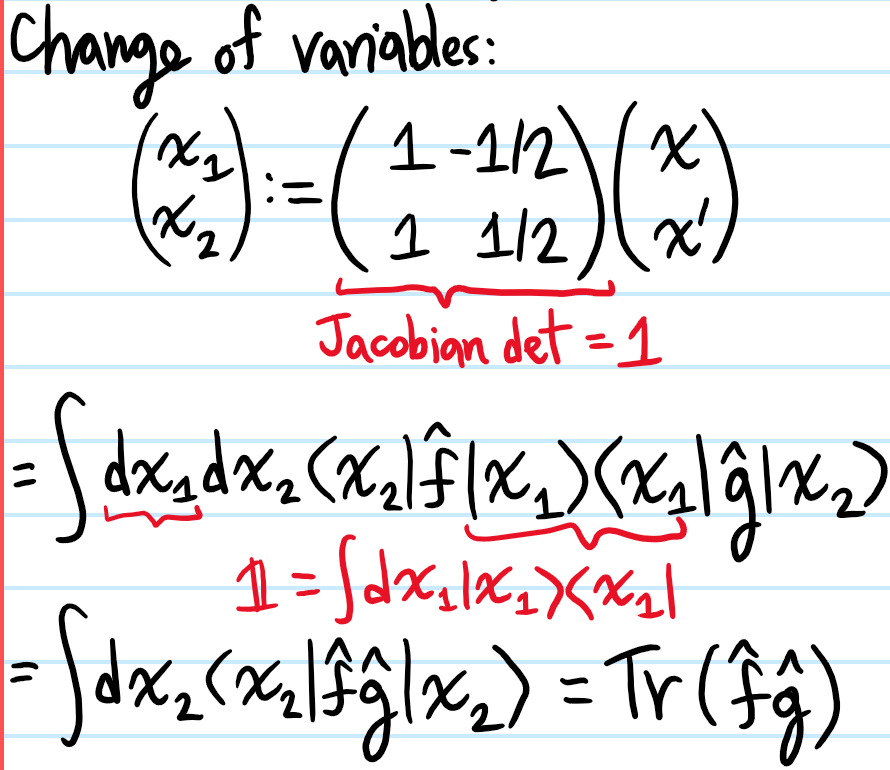 Change of variables:
(x₁ x₂) := (1 -1/2 1 1/2)(x x′)
Jacobian det = 1
= ∫dx₁dx₂⟨x₂|f̂|x₁⟩⟨x₁|ĝ|x₂⟩
𝟙 = ∫dx₁|x₁⟩⟨x₁|
= ∫dx₂⟨x₂|f̂ĝ|x₂⟩ = Tr(f̂ĝ)